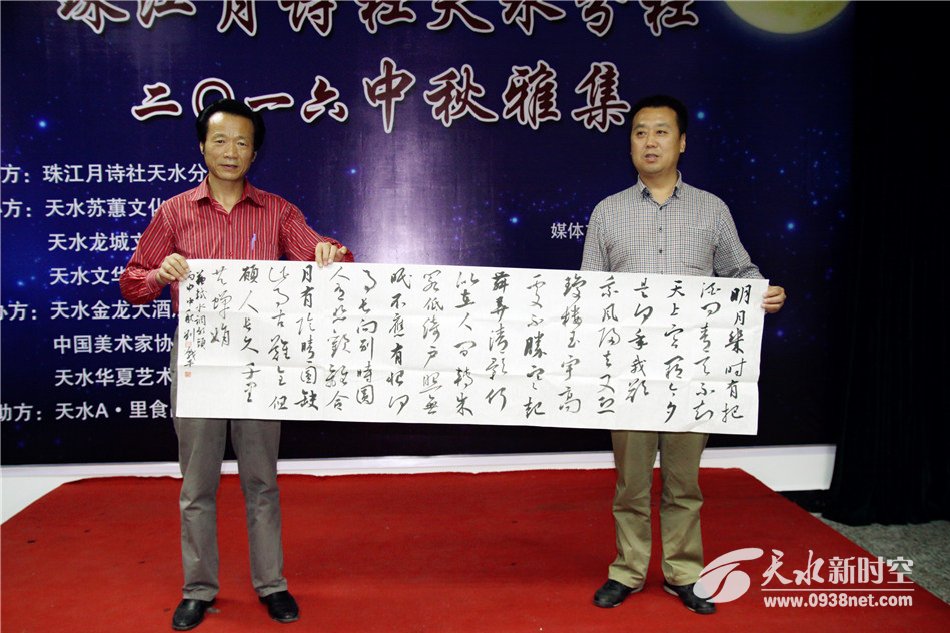 珠江月诗社天水分社
二〇一六中秋雅集
方：珠江月诗社天水分
方：天水苏蕙文化
天水龙城文
天水文华
办方：天水金龙大酒
中国美术家协
天水华夏艺术
助方：天水A·里食
媒体
明月幾时有把
酒问青天不知
天上宫阙今夕
是何年我欲
乘风归去又恐
琼楼玉宇高
处不胜寒起
舞弄清影何
似在人间转朱
阁低绮户照无
眠不应有恨何
事长向别时圆
人有悲欢离合
月有阴晴圆缺
此事古难全但
愿人长久千里
共婵娟
苏轼水调歌头
丙申中秋刘
天水新时空
www.0938net.com